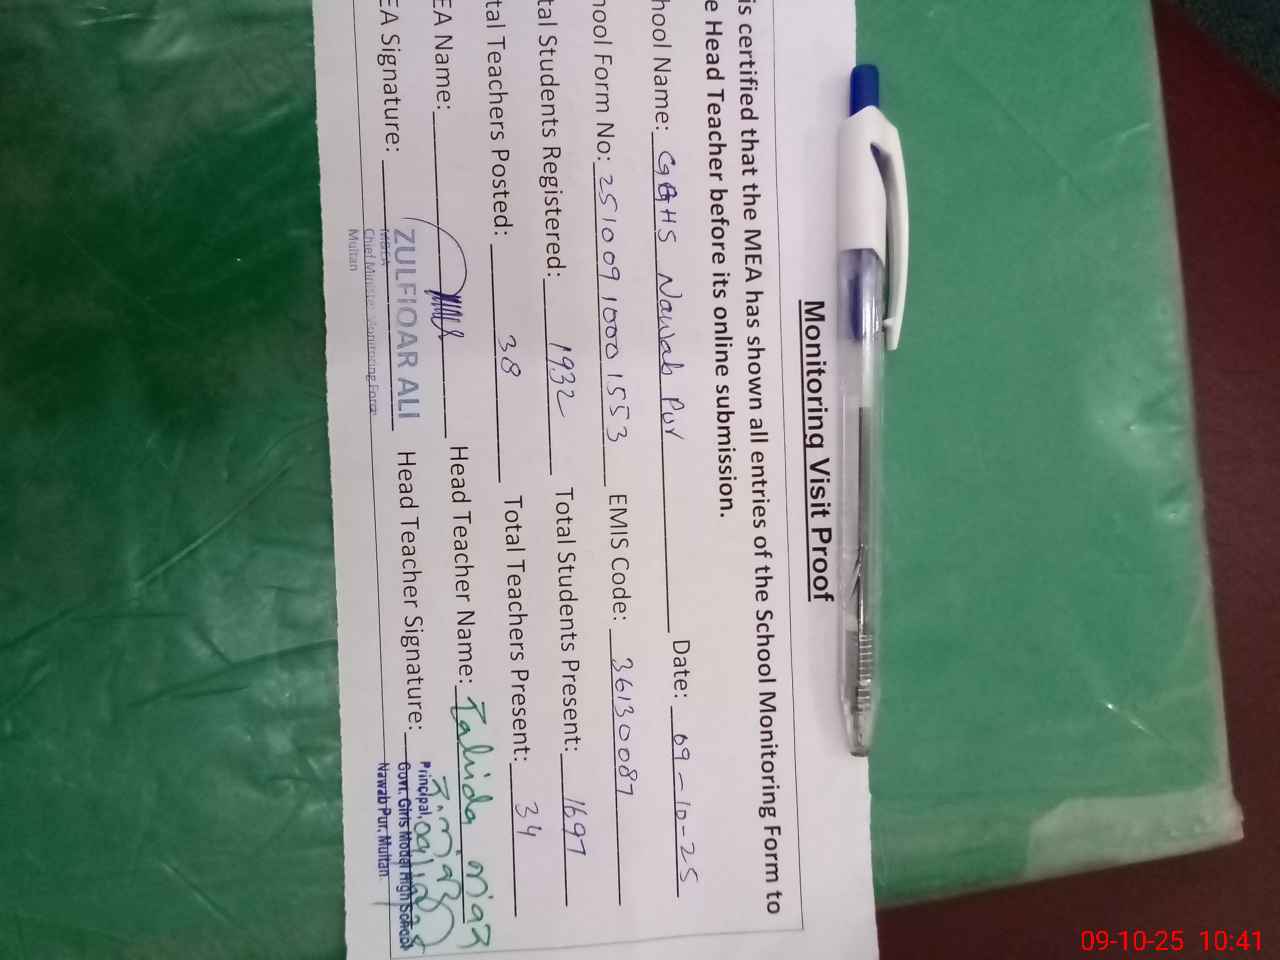 Monitoring Visit Proof
is certified that the MEA has shown all entries of the School Monitoring Form to
e Head Teacher before its online submission.
hool Name: GGHS Nawab Pur Date: 09-10-25
hool Form No: 2510091000 1553 EMIS Code: 36130087
tal Students Registered: 1932 Total Students Present: 1697
tal Teachers Posted: 38 Total Teachers Present: 34
EA Name: Head Teacher Name: Tahida niaz
EA Signature: ZULFIQAR ALI Head Teacher Signature:
Chief Minister Monitoring Force
Multan
Principal,
Govt. Girls Model High School
Nawab Pur, Multan.
09-10-25 10:41